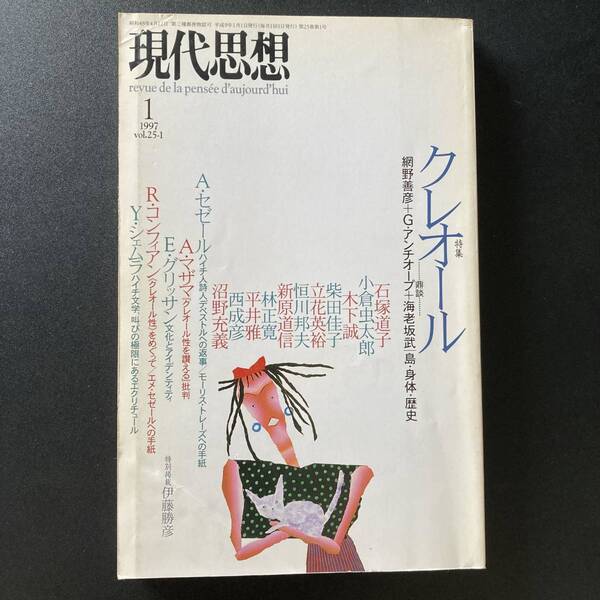 昭和48年4月12日 第三種郵便物認可 平成9年1月1日発行(毎月1回1日発行) 第25巻第1号
現代思想
revue de la pensée d'aujourd'hui
1
1997
vol.25-1
特集
クレオール
鼎談
網野善彦+G・アンチオープ+海老坂武 島・身体・歴史
石塚道子
小倉虫太郎
木下誠
柴田佳子
立花英裕
恒川邦夫
新原道信
林正寛
平井雅
西成彦
沼野充義
A・セゼール ハイチ人詩人デペストルへの返事/モーリス・トレーズへの手紙
A・マザマ 『クレオール性を讃える』批判
E・グリッサン 文化とアイデンティティ
R・コンフィアン 『クレオール性』をめぐって/エメ・セゼールへの手紙
Y・シェムラ ハイチ文学、叫びの極限にあるエクリチュール
特別掲載 伊藤勝彦